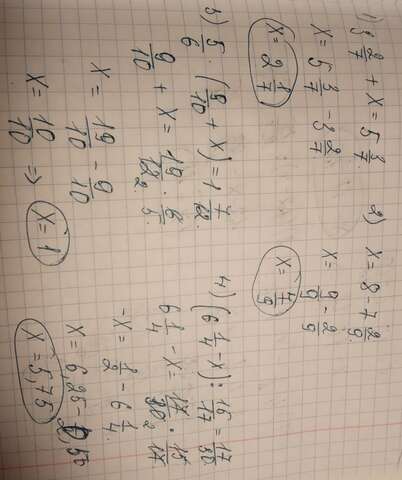 1) 3 2/7 + x = 5 3/7
x = 5 3/7 - 3 2/7
x = 2 1/7
2) x = 8 - 7 2/9
x = 9/9 - 2/9
x = 7/9
3) 5/6 · (9/10 + x) = 1 7/12
9/10 + x = 19/12 · 6/5
2
x = 19/10 - 9/10
x = 10/10 => x = 1
4) (6 1/4 - x) : 15/17 = 17/30
6 1/4 - x = 17/30 · 15/17
2
-x = 1/2 - 6 1/4
x = 6,25 - 0,50
x = 5,75